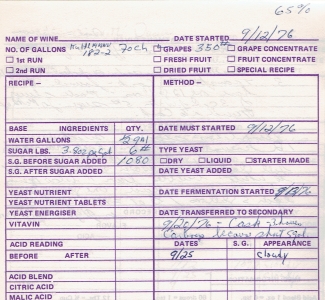 65%
NAME OF WINE DATE STARTED 9/12/76
NO. OF GALLONS 182-2 Foch GRAPES 350## GRAPE CONCENTRATE
1st RUN FRESH FRUIT FRUIT CONCENTRATE
2nd RUN DRIED FRUIT SPECIAL RECIPE
RECIPE — METHOD —
BASE INGREDIENTS QTY. DATE MUST STARTED 9/12/76
WATER GALLONS 2 gal
SUGAR LBS. 6# TYPE YEAST
S.G. BEFORE SUGAR ADDED 1080 DRY LIQUID STARTER MADE
S.G. AFTER SUGAR ADDED DATE YEAST ADDED
YEAST NUTRIENT DATE FERMENTATION STARTED
YEAST NUTRIENT TABLETS
YEAST ENERGISER DATE TRANSFERRED TO SECONDARY
VITAVIN 9/20/76 - Cask
ACID READING DATES S.G. APPEARANCE
BEFORE AFTER 9/25 cloudy
ACID BLEND
CITRIC ACID
MALIC ACID